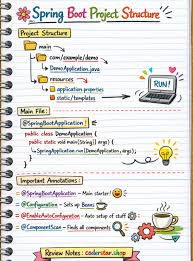 Spring Boot Project Structure
Project Structure
main
com/example/demo
DemoApplication.java
resources
application.properties
static/templates
RUN!
Main File:
@SpringBootApplication
public class DemoApplication {
public static void main(String[] args) {
SpringApplication.run(DemoApplication, args);
}
}
Important Annotations:
@SpringBootApplication - Main starter!
@Configuration - Sets up Beans
@EnableAutoConfiguration - Auto setup of stuff
@ComponentScan - Finds all components
Review Notes: coderstar.shop